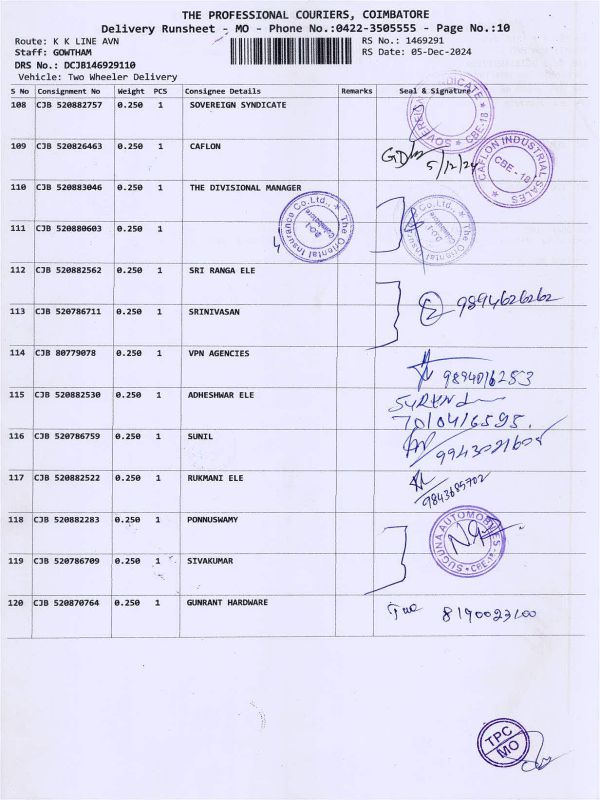 THE PROFESSIONAL COURIERS, COIMBATORE
Delivery Runsheet - MO - Phone No.:0422-3505555 - Page No.:10
Route: K K LINE AVN
Staff: GOWTHAM
DRS No.: DCJB146929110
Vehicle: Two Wheeler Delivery
RS No.: 1469291
RS Date: 05-Dec-2024
S No Consignment No Weight PCS Consignee Details Remarks Seal & Signature
108 CJB 520882757 0.250 1 SOVEREIGN SYNDICATE
SOVEREIGN SYNDICATE CBE-18
109 CJB 520826463 0.250 1 CAFLON
5/12/24
CAFLON INDUSTRIAL SALES CBE-18
110 CJB 520883046 0.250 1 THE DIVISIONAL MANAGER
The Oriental Insurance Co.Ltd., Coimbatore
The Oriental Insurance Co.Ltd., Coimbatore
111 CJB 520880603 0.250 1
112 CJB 520882562 0.250 1 SRI RANGA ELE
9894626262
113 CJB 520786711 0.250 1 SRINIVASAN
114 CJB 80779078 0.250 1 VPN AGENCIES
9894016253
115 CJB 520882530 0.250 1 ADHESHWAR ELE
7010416595.
116 CJB 520786759 0.250 1 SUNIL
117 CJB 520882522 0.250 1 RUKMANI ELE
9843685702
118 CJB 520882283 0.250 1 PONNUSWAMY
SUGUNA AUTOMOBILES CBE-18
119 CJB 520786709 0.250 1 SIVAKUMAR
120 CJB 520870764 0.250 1 GUNRANT HARDWARE
TPC
MO